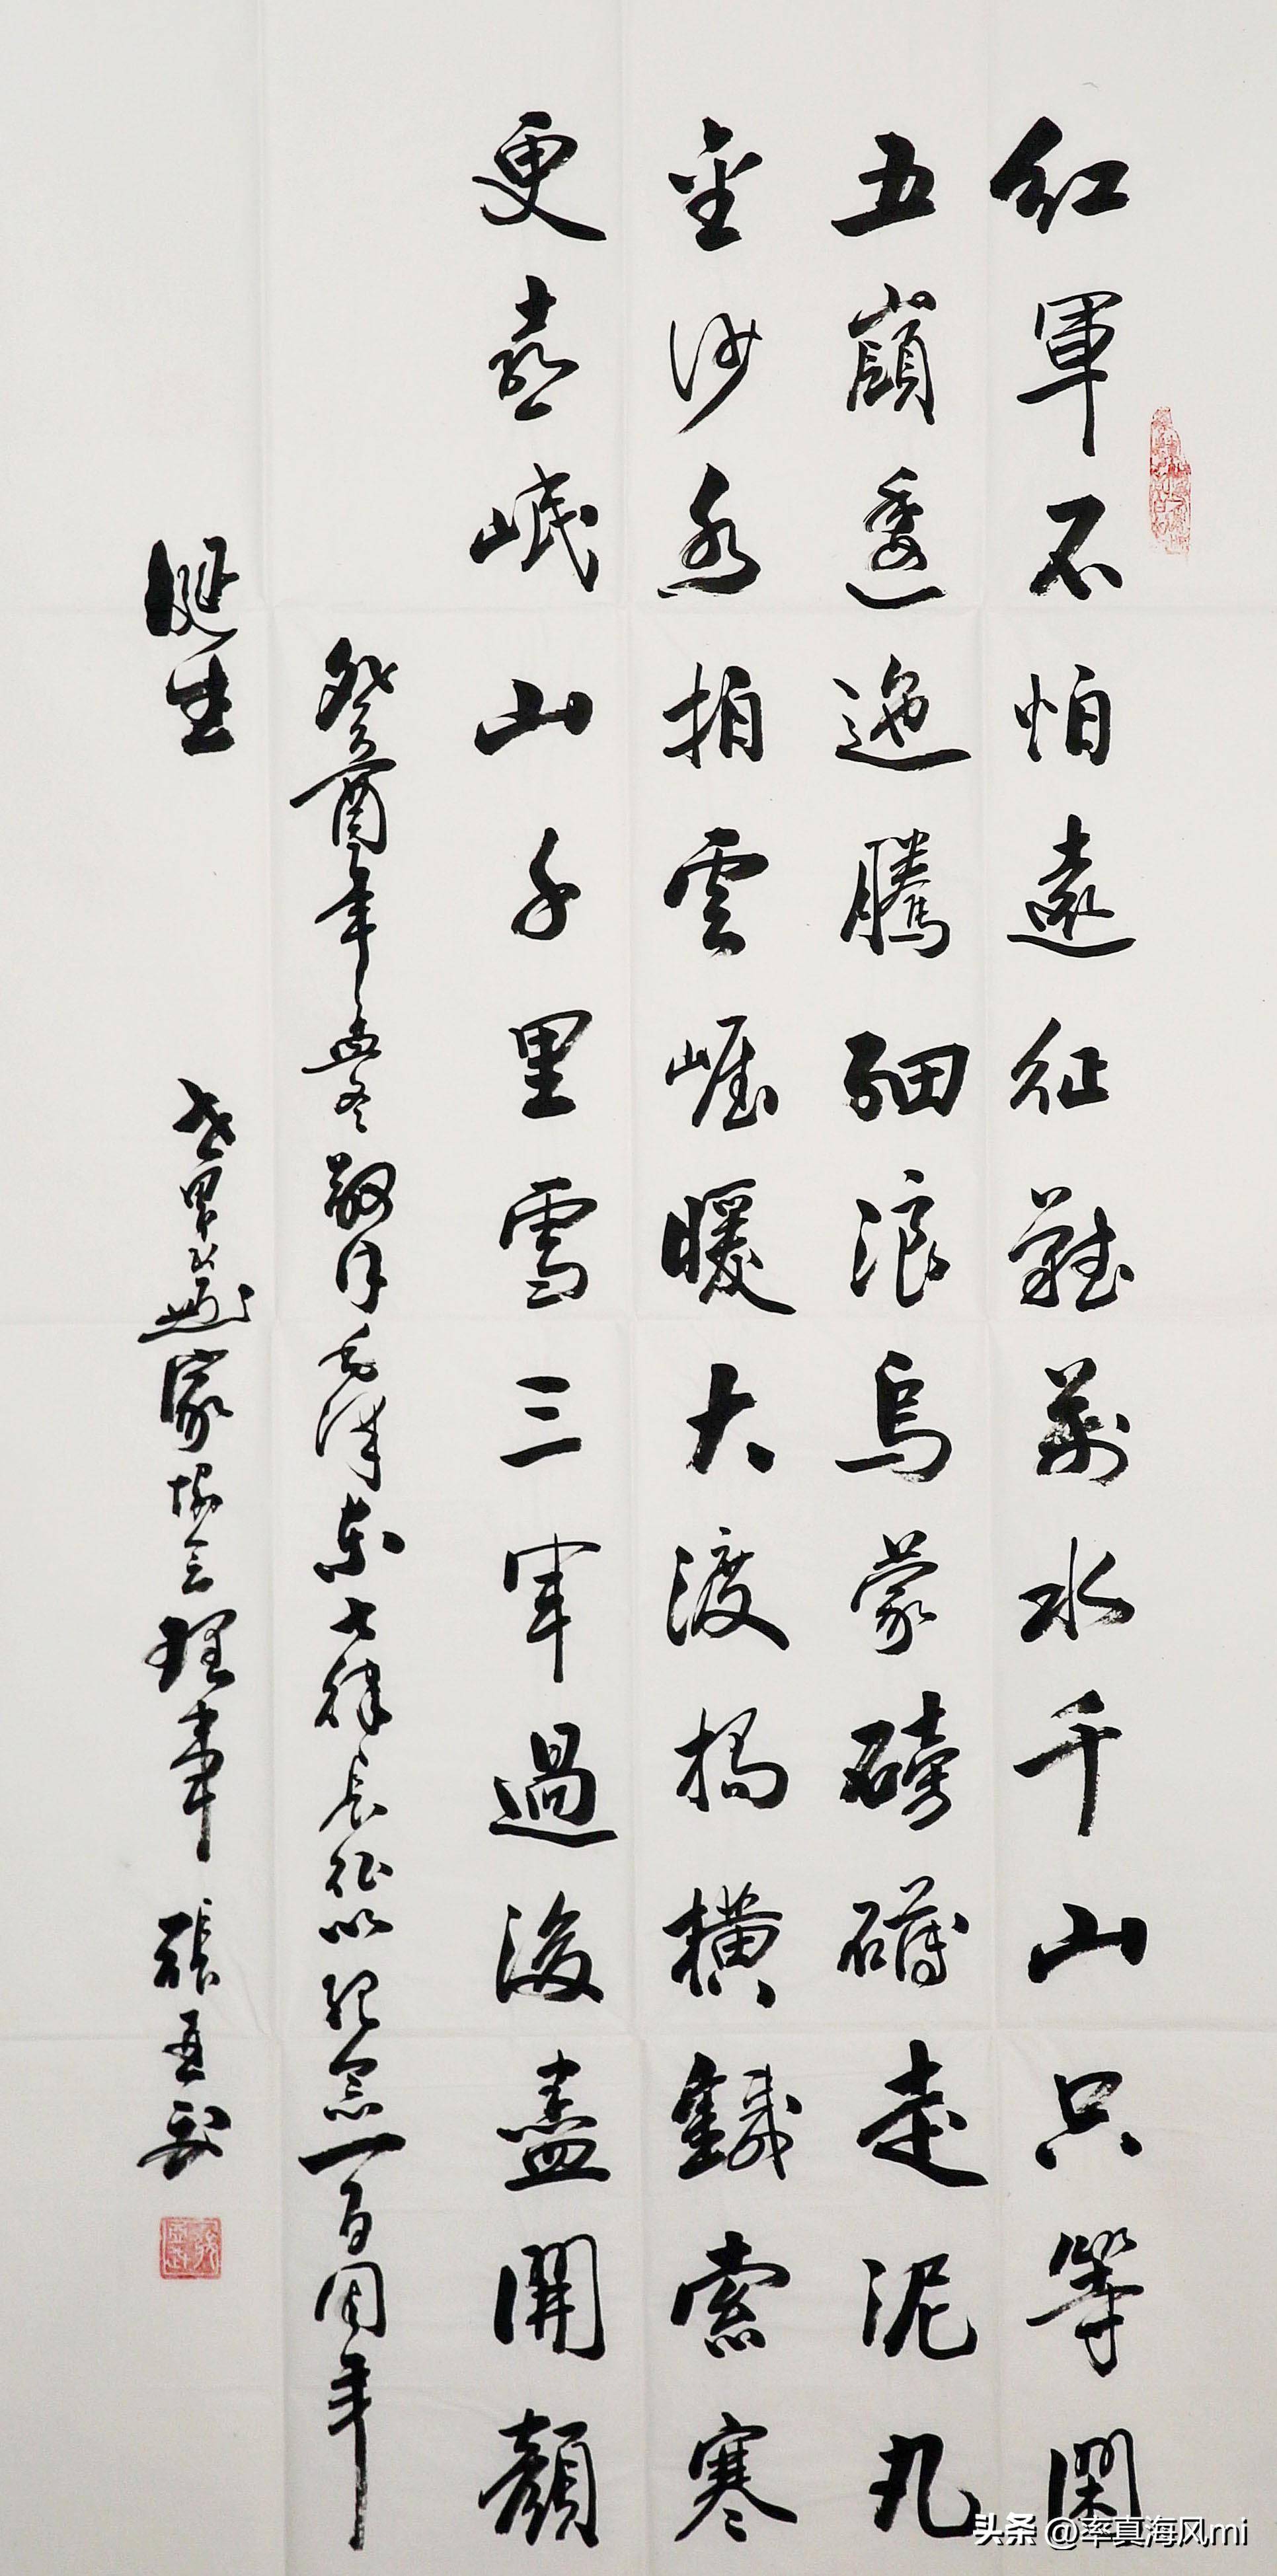 紅軍不怕遠征難萬水千山只等閑
五嶺逶迤騰細浪烏蒙磅礴走泥丸
金沙水拍雲崖暖大渡橋橫鐵索寒
更喜岷山千里雪三軍過後盡開顏
癸酉年孟冬敬书毛澤東七律長征以紀念一百周年
誕生
世界 家協会理事 張
头条 @率真海风mi